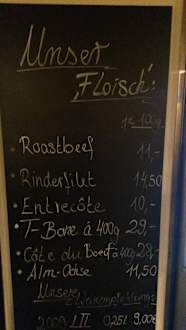 Unser
„Fleisch“:
je 100g
• Roastbeef 11,-
• Rinderfilet 14,50
• Entrecôte 10,-
• T-Bone à 400g 29,-
• Côte du Boeuf à 400g 29,-
• Alm-Ochse 11,50
Unser
0,25l 9,00€